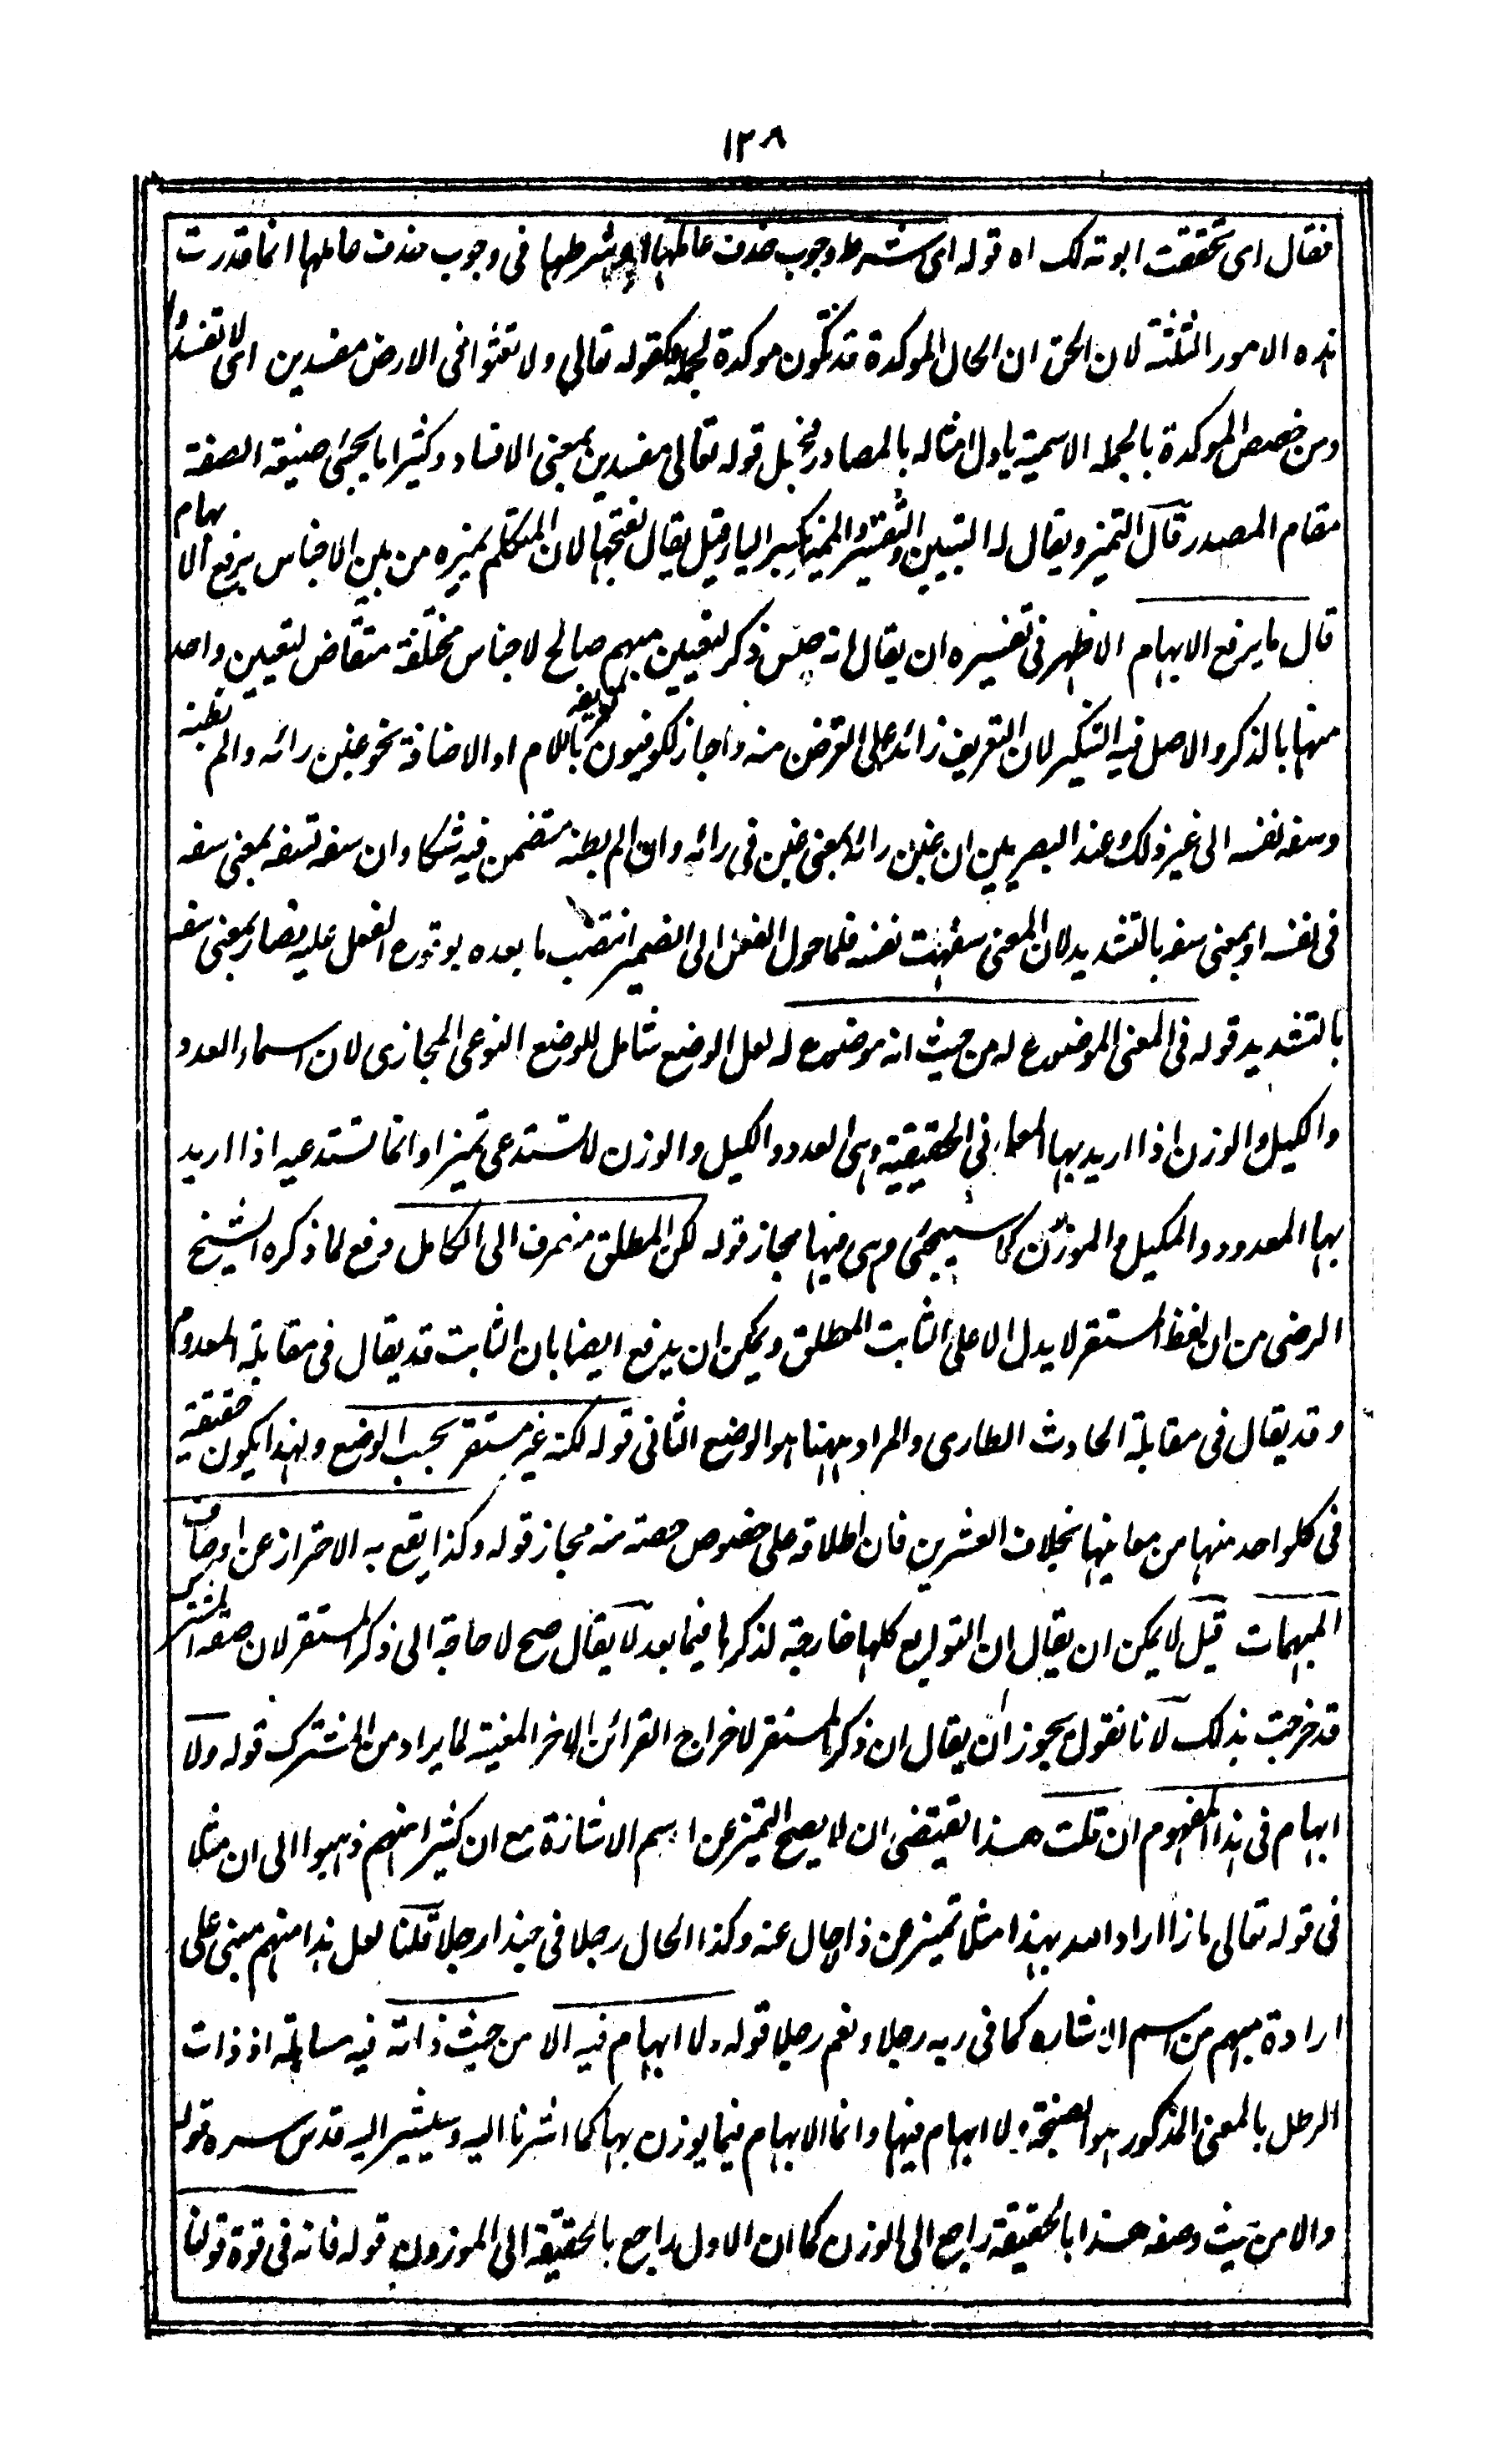 ١٢٨
فقال اى تحققت ابوته لك اه قوله اى شرط وجوب حذف عاملها اى شرطها فى وجوب حذف عاملها انما قدرت
هذه الامور الثلثة لان الحق ان الحال الموكدة قد تكون موكدة لجملة كقوله تعالى ولا تعثوا فى الارض مفسدين اى لا تفسدوا
ومن خصص الموكدة بالجملة الاسمية ياول امثاله بالمصادر قوله تعالى مفسدين بمعنى الافساد وكثيرا ما يجئ صيغة الصفة
مقام المصدر قال التميز ويقال له التبيين والتفسير والمميز بكسر الياء وقيل يقال بفتحها لان المتكلم يميزه من بين الاجناس يرفع الابهام
قال ما يرفع الابهام الاظهر فى تفسيره ان يقال انه جنس ذكر لتعيين مبهم صالح لاجناس مختلفة متقاض لتعيين واحد
منها بالذكر والاصل فيه التنكير لان التعريف زائد على الغرض منه واجاز الكوفيون تعريفه باللام او الاضافة نحو غبن رائه والم بطنه
وسفه نفسه الى غير ذلك وعند البصريين ان غبن رائه بمعنى غبن فى رائه وان الم بطنه متضمن فيه شكا وان سفه نفسه بمعنى سفه
فى نفسه او بمعنى سفه بالتشديد لان المعنى سفهت نفسه فلما حول الفعل الى الضمير انتصب ما بعده بوقوع الفعل عليه فصار بمعنى سفه
بالتشديد قوله فى المعنى الموضوع له من حيث انه موضوع له لعل الوضع شامل للوضع النوعى المجازى لان اسماء العدد
والكيل والوزن اذا اريد بها المعانى الحقيقية وهى العدد والكيل والوزن لا تستدعى تميزا وانما تستدعيه اذا اريد
بها المعدود والمكيل والموزون كما سيجئ وهى فيها مجاز قوله لكن المطلق منصرف الى الكامل دفع لما ذكره الشيخ
الرضى من ان لفظ المستقر لا يدل الا على الثابت المطلق ويمكن ان يدفع ايضا بان الثابت قد يقال فى مقابلة المعدوم
وقد يقال فى مقابلة الحادث الطارى والمراد ههنا هو الوضع الثانى قوله لكنه غير مستقر بحسب الوضع ولهذا يكون حقيقة
فى كل واحد منها من معانيها بخلاف العشرين فان اطلاقه على خصوص حصته منه مجاز قوله وكذا يقع به الاحتراز عن اوصاف
المبهمات قيل لا يمكن ان يقال ان التوابع كلها خارجة لذكرها فيما بعد لا يقال صح لا حاجة الى ذكر المستقر لان صفة المشترك
قد خرجت بذلك لانا نقول يجوز ان يقال ان ذكر المستقر لاخراج القرائن الاخر المغنية لما يراد من المشترك قوله ولا
ابهام فى هذا المفهوم ان قلت هذا يقتضى ان لا يصح التميز عن اسم الاشارة مع ان كثيرا منهم ذهبوا الى ان مثلا
فى قوله تعالى ماذا اراد الله بهذا مثلا تميز عن ذا حال عنه وكذا الحال رجلا فى حبذا رجلا قلنا لعل هذا منهم مبنى على
ارادة مبهم من اسم الاشاره كما فى ربه رجلا ونعم رجلا قوله ولا ابهام فيه الا من حيث ذاته فيه مساهلة اذ ذات
الرطل بالمعنى المذكور هو الصنجة ولا ابهام فيها وانما الابهام فيما يوزن بها كما اشرنا اليه وسيشير اليه قدس سره قوله
والا من حيث وصفه هذا بالحقيقة راجع الى الوزن كما ان الاول راجع بالحقيقة الى الموزون قوله فانه فى قوة قولنا